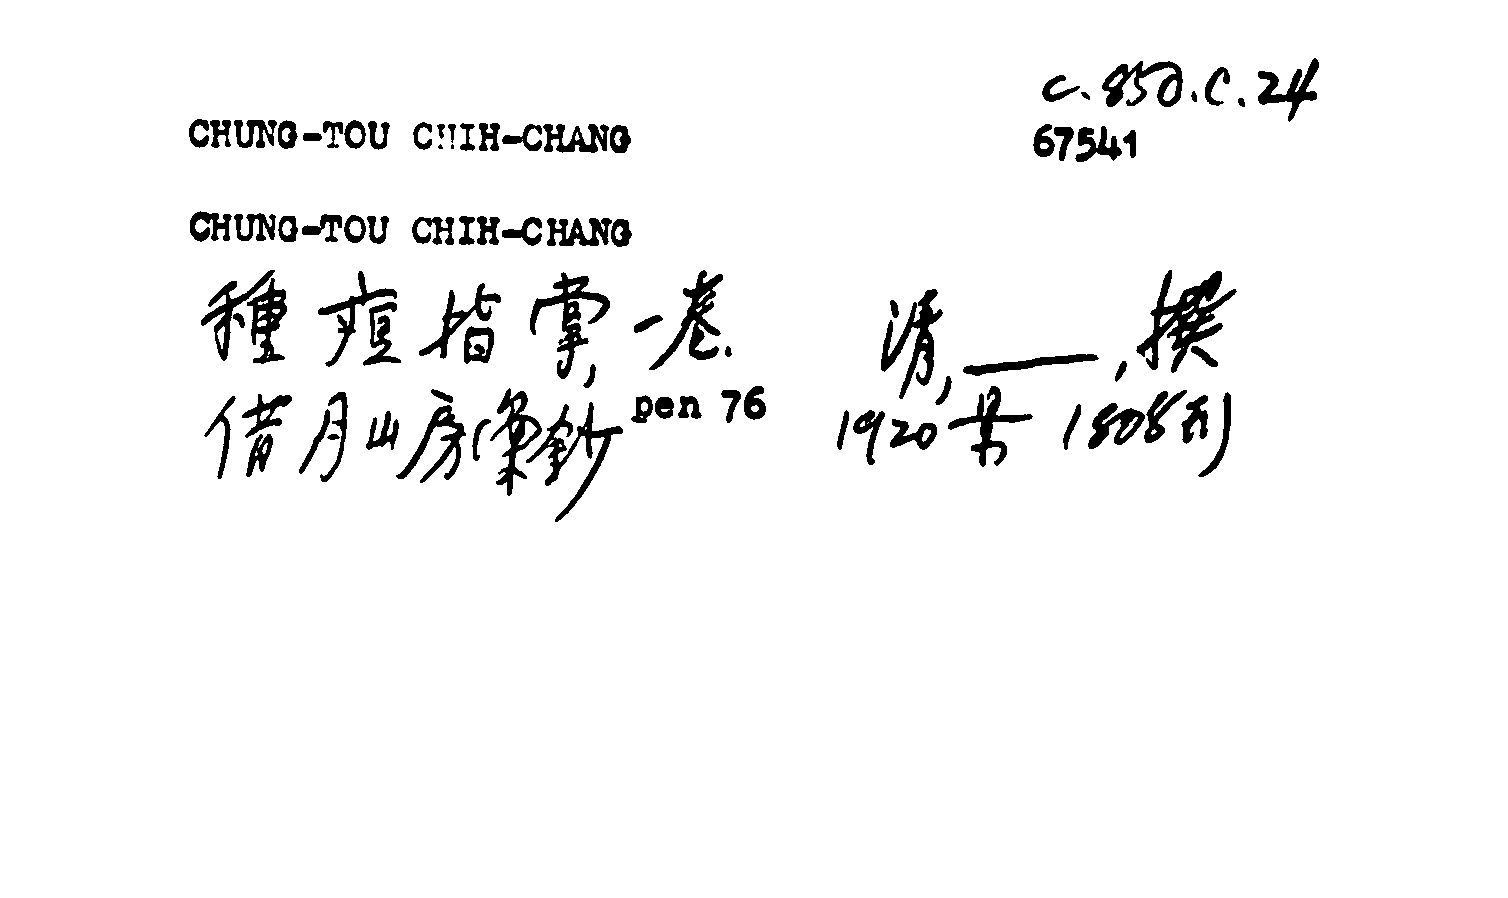 c.850.c.24
CHUNG-TOU CHIH-CHANG
67541
CHUNG-TOU CHIH-CHANG
種痘指掌,一卷. 清,____,撰
借月山房彙鈔 pen 76 1920景 1808刊